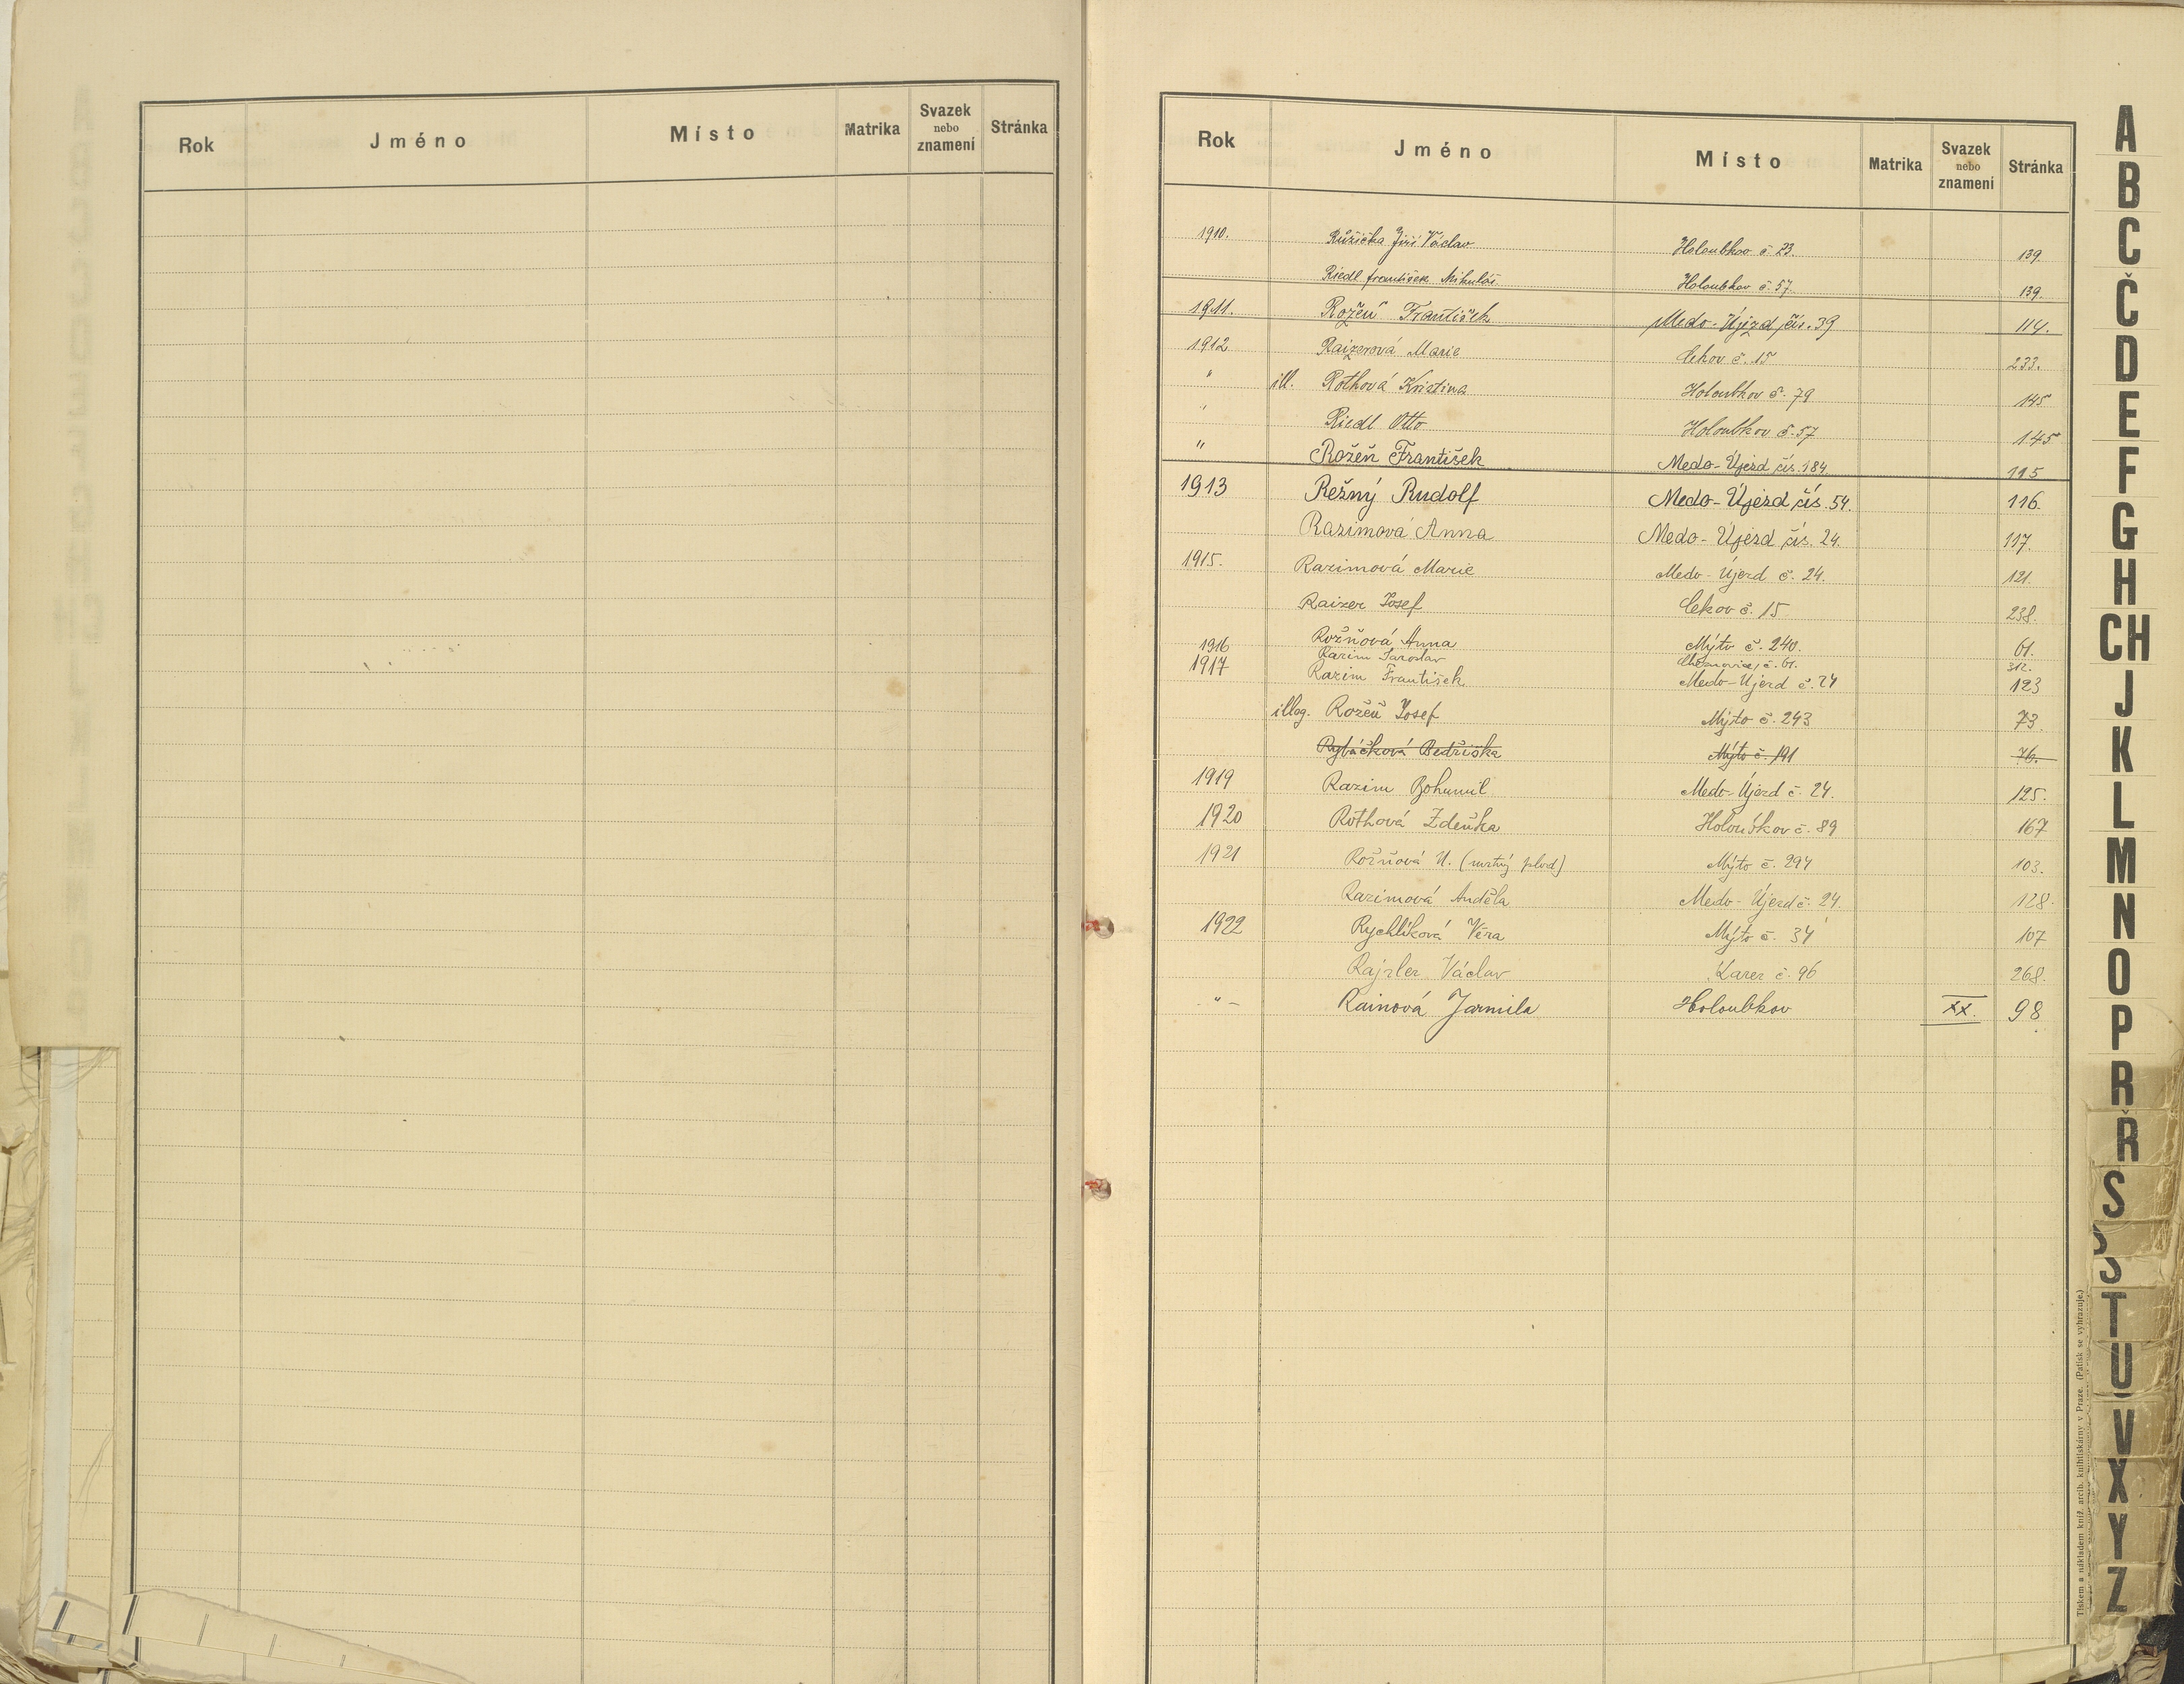 Rok Jméno Místo Matrika Svazek nebo znamení Stránka
Rok Jméno Místo Matrika Svazek nebo znamení Stránka
1910. Růžička Jiří Václav Holoubkov č. 23. 139.
Riedl František Mikuláš Holoubkov č. 57. 139.
1911. Rožeň František Medo-Újezd čís. 39 114.
1912 Raizerová Marie Cekov č. 15 233.
" ill. Rothová Kristina Holoubkov č. 79 145
" Riedl Otto Holoubkov č. 57 145
" Rožeň František Medo-Újezd čís. 184 115
1913 Režný Rudolf Medo-Újezd čís. 54. 116.
Razimová Anna Medo-Újezd čís. 24. 117.
1915. Razimová Marie Medo-Újezd č. 24. 121.
Raizer Josef Cekov č. 15 238.
1916 Rožňová Anna Mýto č. 240. 61.
Razim Jaroslav č. 61. 312.
1917 Razim František Medo-Újezd č. 24 123
illeg. Rožeň Josef Mýto č. 243 73.
Rybáčková Bedřiška Mýto č. 191 76.
1919 Razim Bohumil Medo-Újezd č. 24. 125.
1920 Rothová Zdeňka Holoubkov č. 89 167
1921 Rožňová N. (mrtvý plod) Mýto č. 294 103.
Razimová Anděla Medo-Újezd č. 24 128.
1922 Rychlíková Věra Mýto č. 34 107
Rajzler Václav Karez č. 96 268.
-"- Rainová Jarmila Holoubkov XX. 98
A
B
C
Č
D
E
F
G
H
CH
J
K
L
M
N
O
P
R
Ř
S
Š
T
U
V
X
Y
Z
Tiskem a nákladem kníž. arcib. knihtiskárny v Praze. (Patisk se vyhrazuje.)